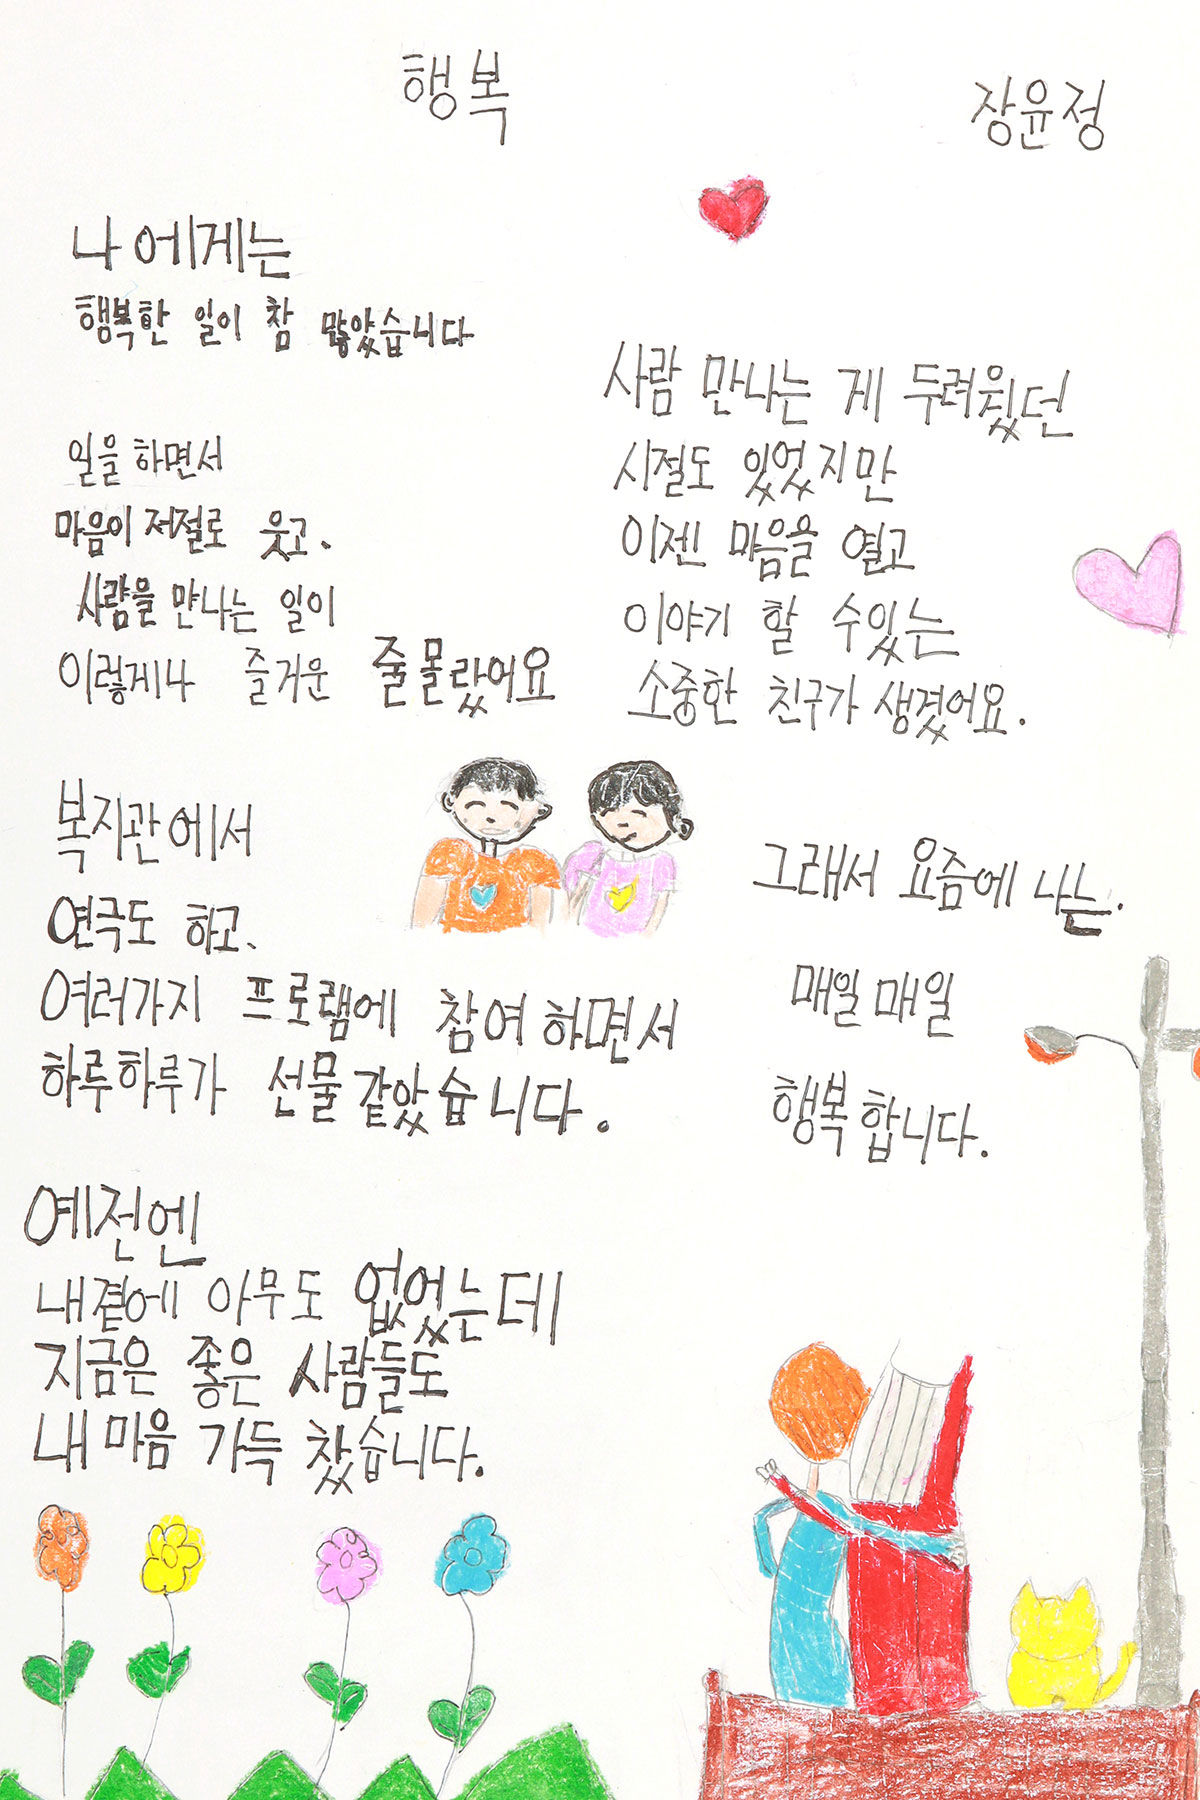 행복
장윤정
나에게는
행복한 일이 참 많았습니다
일을 하면서
마음이 저절로 웃고.
사람을 만나는 일이
이렇게나 즐거운 줄몰랐어요
복지관에서
연극도 하고.
여러가지 프로램에 참여하면서
하루하루가 선물같았습니다.
예전엔
내곁에 아무도 없었는데
지금은 좋은 사람들도
내 마음 가득 찼습니다.
사람 만나는 게 두려웠던
시절도 있었지만
이젠 마음을 열고
이야기 할 수있는
소중한 친구가 생겼어요.
그래서 요즘에 나는.
매일매일
행복합니다.